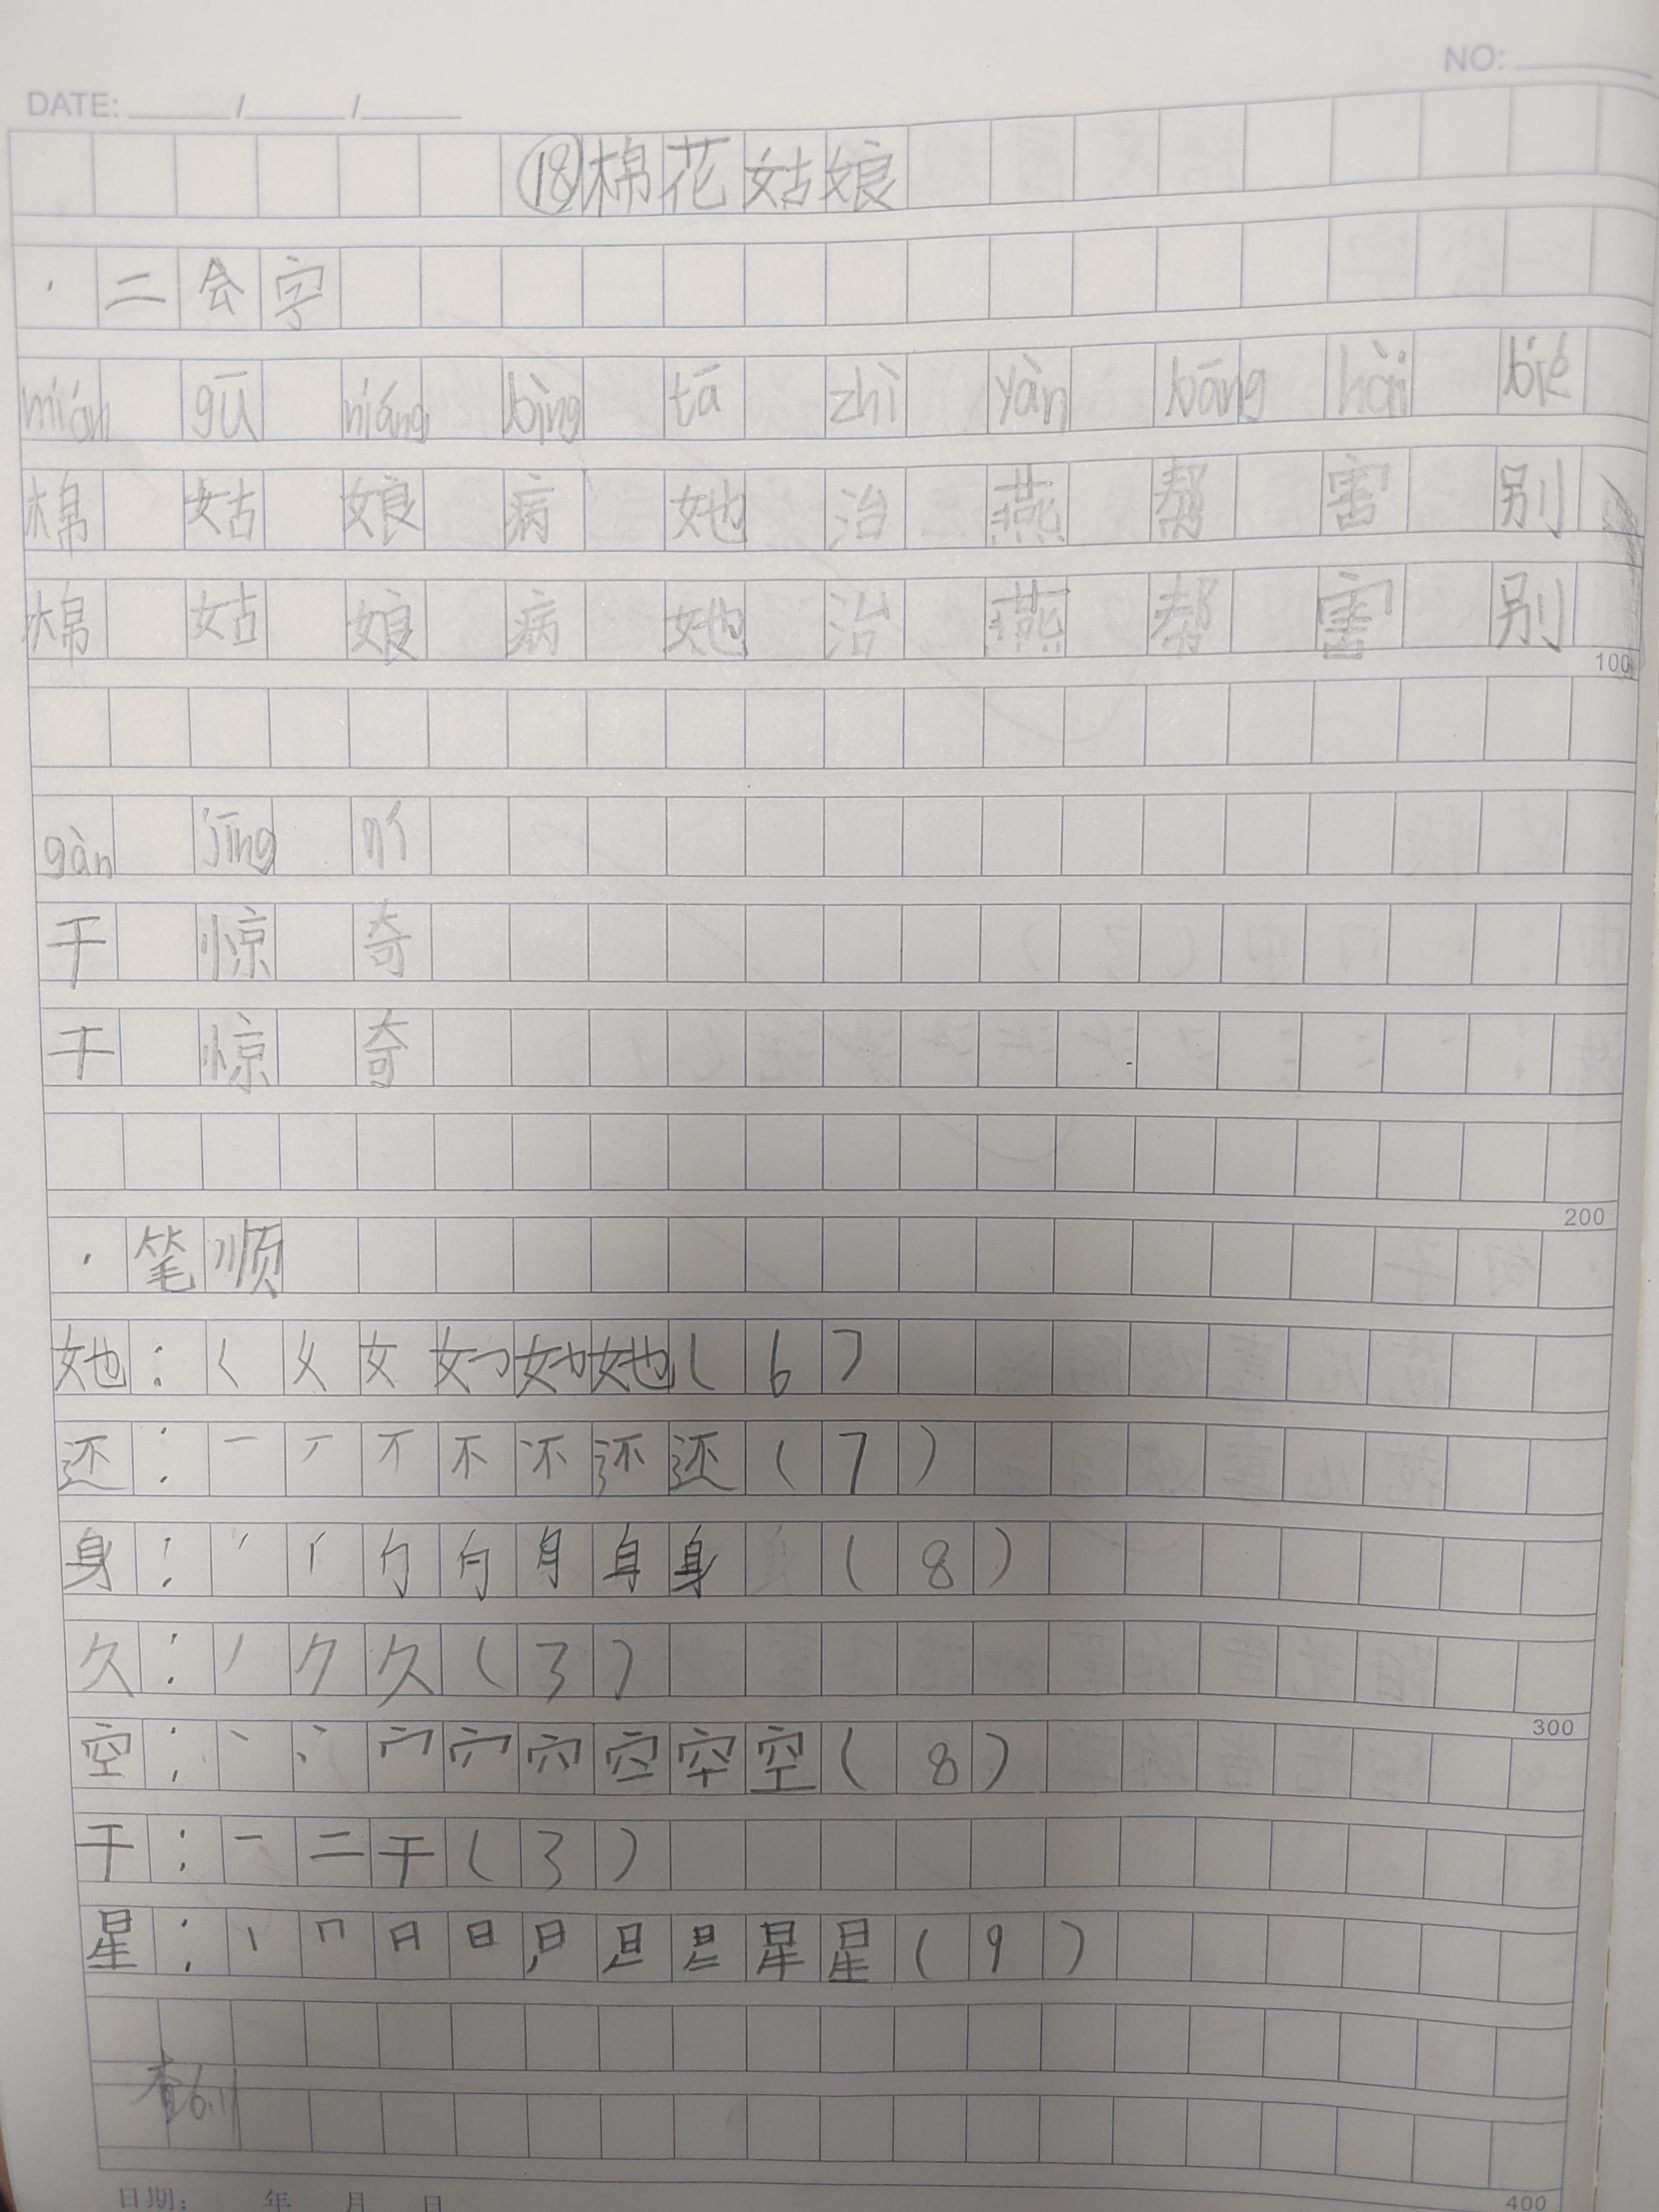 NO:
DATE: / /
⑱棉花姑娘
·二会字
mián gū niáng bìng tā zhì yàn bāng hài bié
棉 姑 娘 病 她 治 燕 帮 害 别
棉 姑 娘 病 她 治 燕 帮 害 别
100
gàn jīng qí
干 惊 奇
干 惊 奇
200
·笔顺
她:く 女 女 她(6)
还:一 丆 不 不 还(7)
身:丿 身(8)
久:丿 ク 久(3)
300
空:丶 丷 宀 穴 空(8)
干:一 二 干(3)
星:丨 冂 日 日 旦 星(9)
查6.11
日期: 年 月 日
400